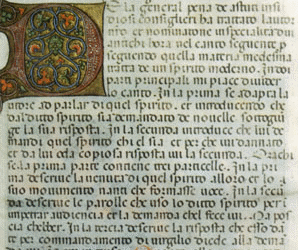 Ela general pena de astuti insi
diosi consiglieri ha tractato lauto
re et nominatone inspecialita dui
antichi hora nel canto sequente p
sequendo quella materia medesima
tratta de un spirito moderno. In doi
parti principali mi piace dividere
lo canto. In la prima se adapta la
utore ad parlar di quel spirito. et introducendo che
dal dicto spirito sia demandato de novelle sottogiu
ge la sua risposta. In la secunda introduce che lui de
mandi quel spirito chi el sia et per che vui dannato
et da lui cela copiosa risposta vui la secunda. Ora che
se la prima parte contene trei particelle. In la pri
ma descrive la venuta di quel spirito alloro et lo
suo movimento nanti che formasse voce. In la secu
da descrive le parolle che uso lo dicto spirito per i
impetrar audiencia et la demanda chel fece
cia chebber. In la terza descrive la risposta che esso di
et per commandamento di virgilio dicele alla dema